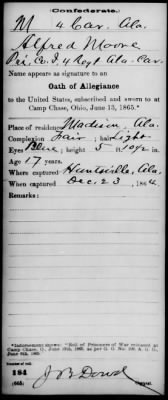 Confederate.
M 4 Cav. Ala.
Alfred Moore
Pri., Co. I, 4 Regt Ala. Cav.
Name appears as signature to an
Oath of Allegiance
to the United States, subscribed and sworn to at
Camp Chase, Ohio, June 13, 1865.*
Place of residence Madison, Ala.
Complexion Fair ; hair Light
Eyes Blue ; height 5 ft. 10 1/2 in.
Age 17 years.
Where captured Huntsville, Ala.
When captured Dec. 23, 1864
Remarks:
*Indorsement shows: "Roll of Prisoners of War released at
Camp Chase, O., June 13th, 1865, as per G. O. No. 109, A. G. O.,
June 6th, 1865.
Number of roll:
184
(665) J B Dowd
Copyist.